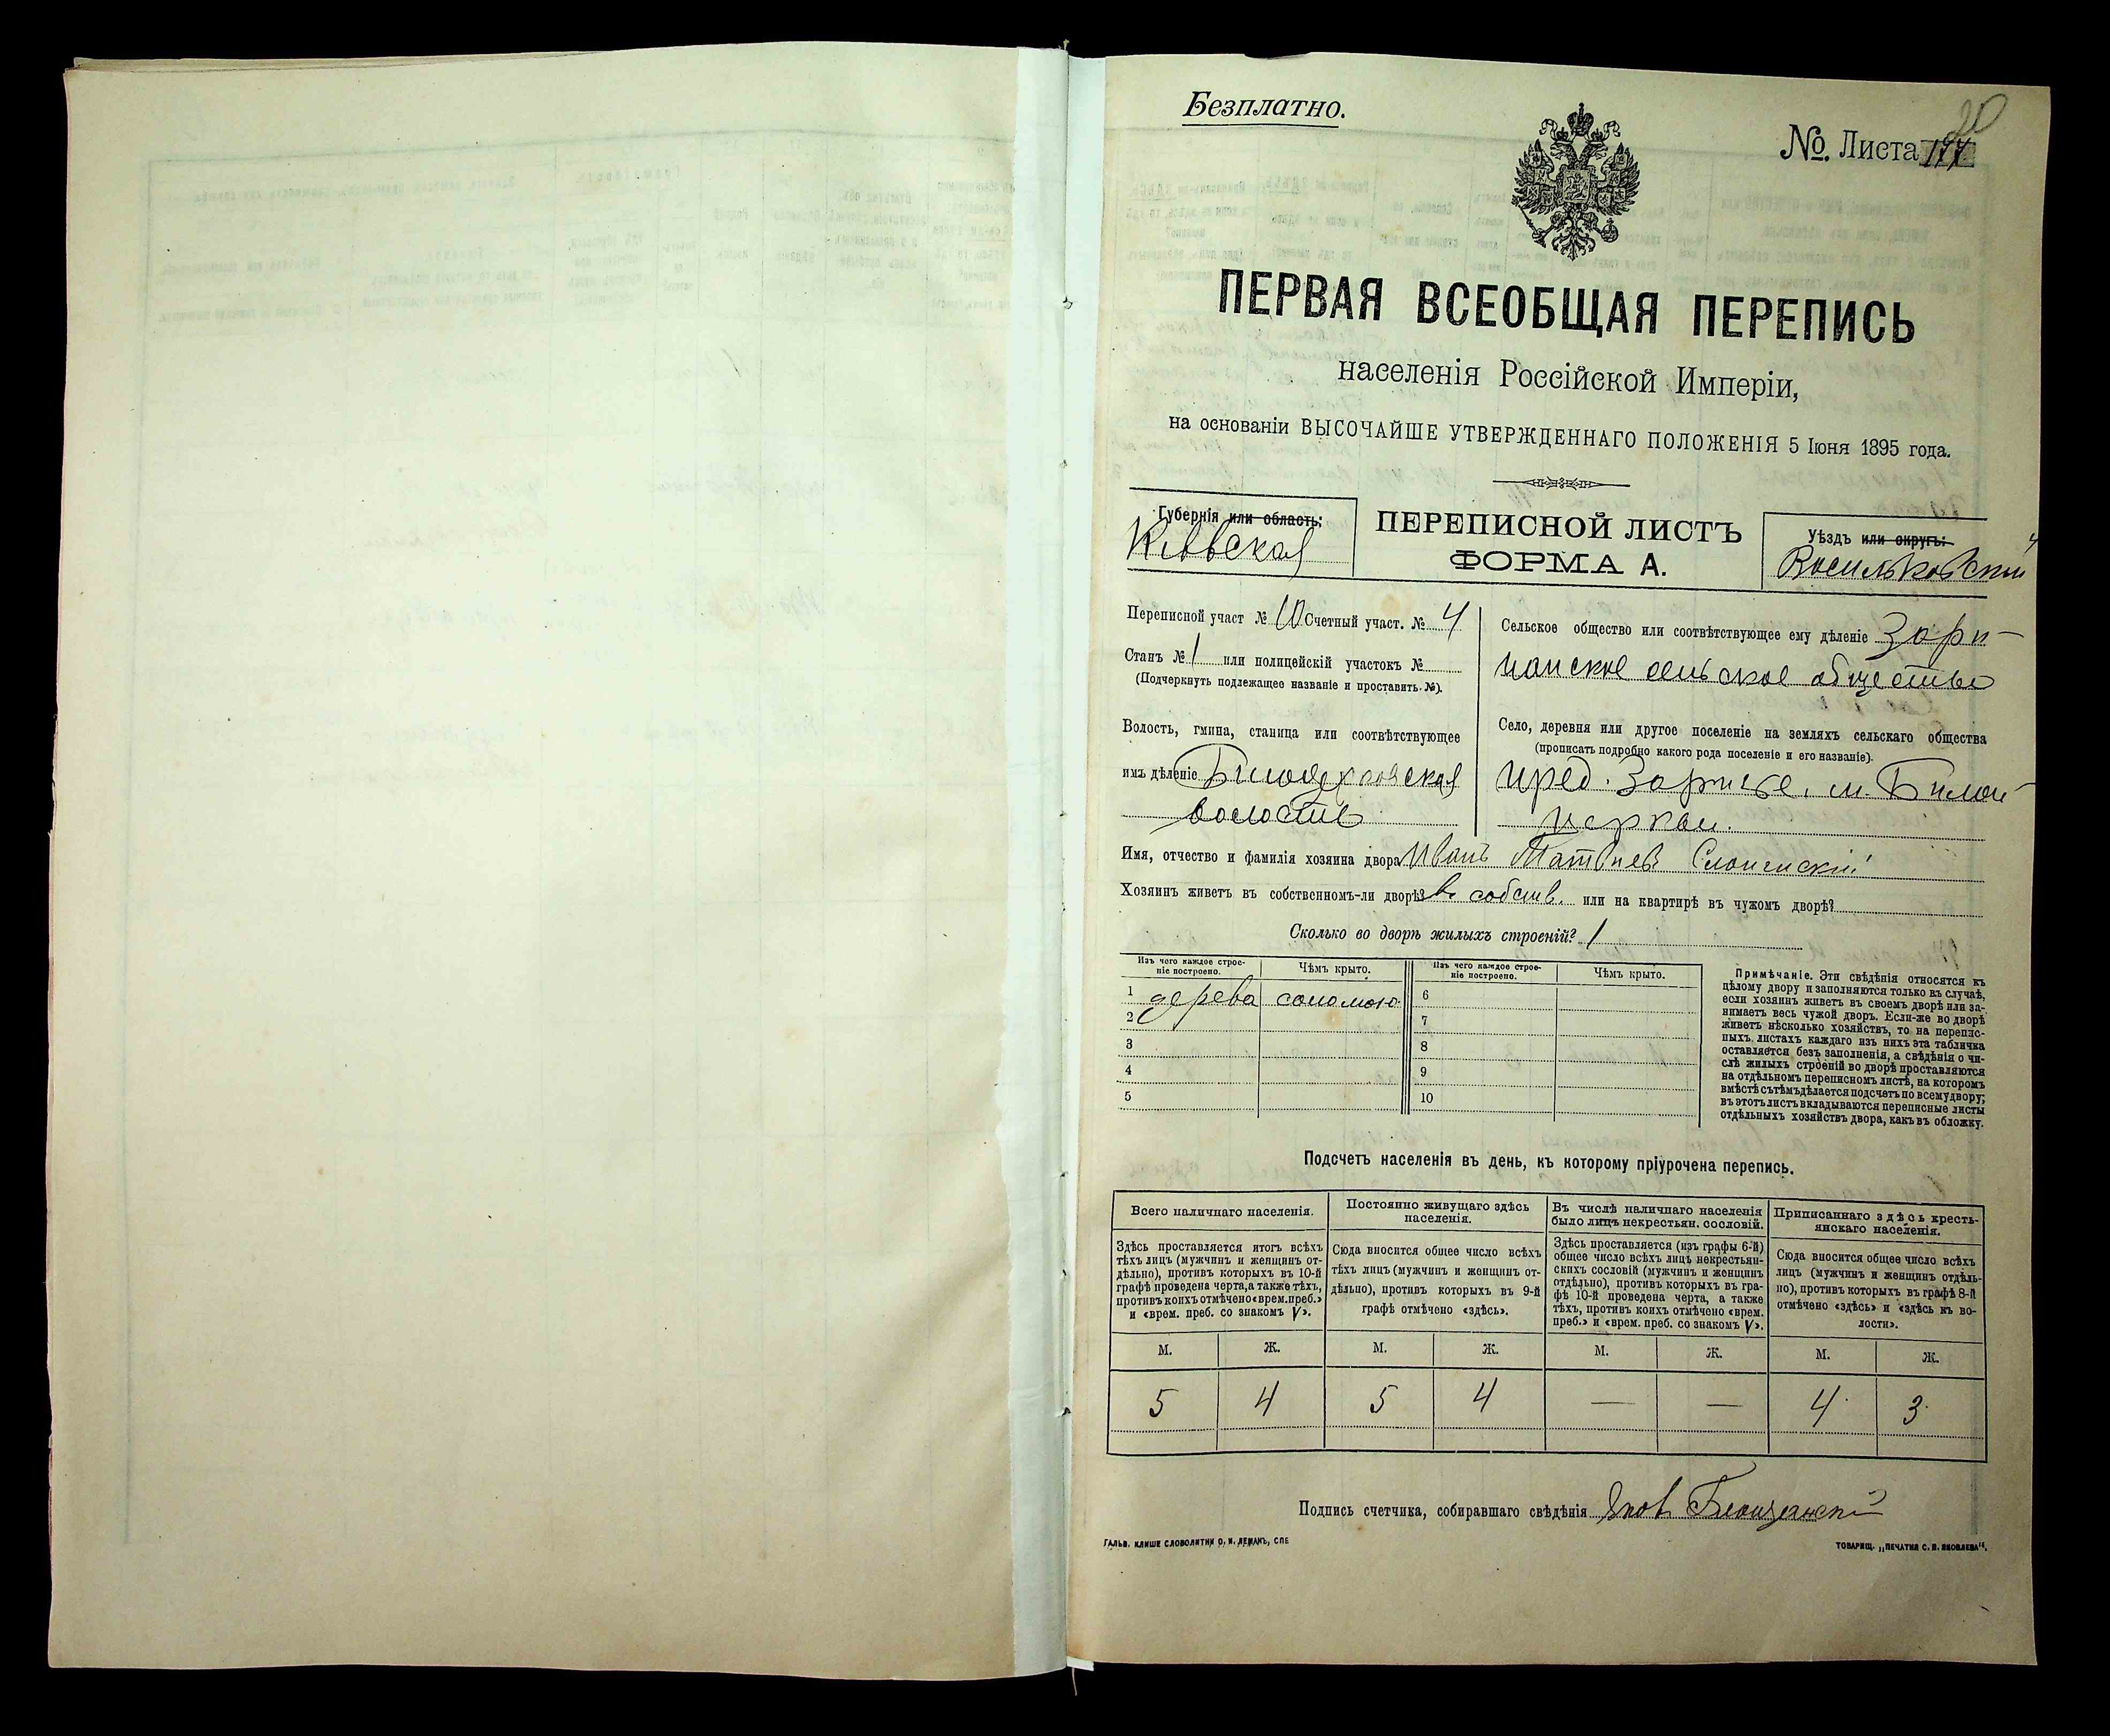 Безплатно.
№. Листа 177
20
ПЕРВАЯ ВСЕОБЩАЯ ПЕРЕПИСЬ
населенія Россійской Имперіи,
на основаніи ВЫСОЧАЙШЕ УТВЕРЖДЕННАГО ПОЛОЖЕНІЯ 5 Іюня 1895 года.
Губернія или область:
Кіевская
ПЕРЕПИСНОЙ ЛИСТЪ
ФОРМА А.
Уѣздъ или округъ:
Васильковскій
Переписной участ № 10 Счетный участ. № 4
Станъ № 1 или полицейскій участокъ №
(Подчеркнуть подлежащее названіе и проставить №).
Волость, гмина, станица или соотвѣтствующее
имъ дѣленіе Билоцерковская
волость
Сельское общество или соотвѣтствующее ему дѣленіе Зари-
чанское сельское общество
Село, деревня или другое поселеніе на земляхъ сельскаго общества
(прописать подробно какого рода поселеніе и его названіе).
пред. Заричье. м. Билой
церкви.
Имя, отчество и фамилія хозяина двора Иванъ Матвіев Слонимскій
Хозяинъ живетъ въ собственномъ-ли дворѣ? в собств. или на квартирѣ въ чужомъ дворѣ?
Сколько во дворѣ жилыхъ строеній? 1
Изъ чего каждое строе-
ніе построено.
Чѣмъ крыто.
Изъ чего каждое строе-
ніе построено.
Чѣмъ крыто.
1 дерева соломою 6
2 7
3 8
4 9
5 10
Примѣчаніе. Эти свѣдѣнія относятся къ
цѣлому двору и заполняются только въ случаѣ,
если хозяинъ живетъ въ своемъ дворѣ или за-
нимаетъ весь чужой дворъ. Если-же во дворѣ
живетъ нѣсколько хозяйствъ, то на перепис-
ныхъ листахъ каждаго изъ нихъ эта табличка
оставляется безъ заполненія, а свѣдѣнія о чи-
слѣ жилыхъ строеній во дворѣ проставляются
на отдѣльномъ переписномъ листѣ, на которомъ
вмѣстѣ съ тѣмъ дѣлается подсчетъ по всему двору;
въ этотъ листъ вкладываются переписные листы
отдѣльныхъ хозяйствъ двора, какъ въ обложку.
Подсчетъ населенія въ день, къ которому пріурочена перепись.
Всего наличнаго населенія.
Здѣсь проставляется итогъ всѣхъ
тѣхъ лицъ (мужчинъ и женщинъ от-
дѣльно), противъ которыхъ въ 10-й
графѣ проведена черта, а также тѣхъ,
противъ коихъ отмѣчено «врем. преб.»
и «врем. преб. со знакомъ V».
Постоянно живущаго здѣсь
населенія.
Сюда вносится общее число всѣхъ
тѣхъ лицъ (мужчинъ и женщинъ от-
дѣльно), противъ которыхъ въ 9-й
графѣ отмѣчено «здѣсь».
Въ числѣ наличнаго населенія
было лицъ некрестьян. сословій.
Здѣсь проставляется (изъ графы 6-й)
общее число всѣхъ лицъ некрестьян-
скихъ сословій (мужчинъ и женщинъ
отдѣльно), противъ которыхъ въ гра-
фѣ 10-й проведена черта, а также
тѣхъ, противъ коихъ отмѣчено «врем.
преб.» и «врем. преб. со знакомъ V».
Приписаннаго здѣсь кресть-
янскаго населенія.
Сюда вносится общее число всѣхъ
лицъ (мужчинъ и женщинъ отдѣль-
но), противъ которыхъ въ графѣ 8-й
отмѣчено «здѣсь» и «здѣсь къ во-
лости».
М. Ж. М. Ж. М. Ж. М. Ж.
5 4 5 4 — — 4 3
Подпись счетчика, собиравшаго свѣдѣнія Яков
ГАЛЬВ. КЛИШЕ СЛОВОЛИТНИ О. И. ЛЕМАНЪ, СПБ
ТОВАРИЩ. „ПЕЧАТНЯ С. П. ЯКОВЛЕВА“.